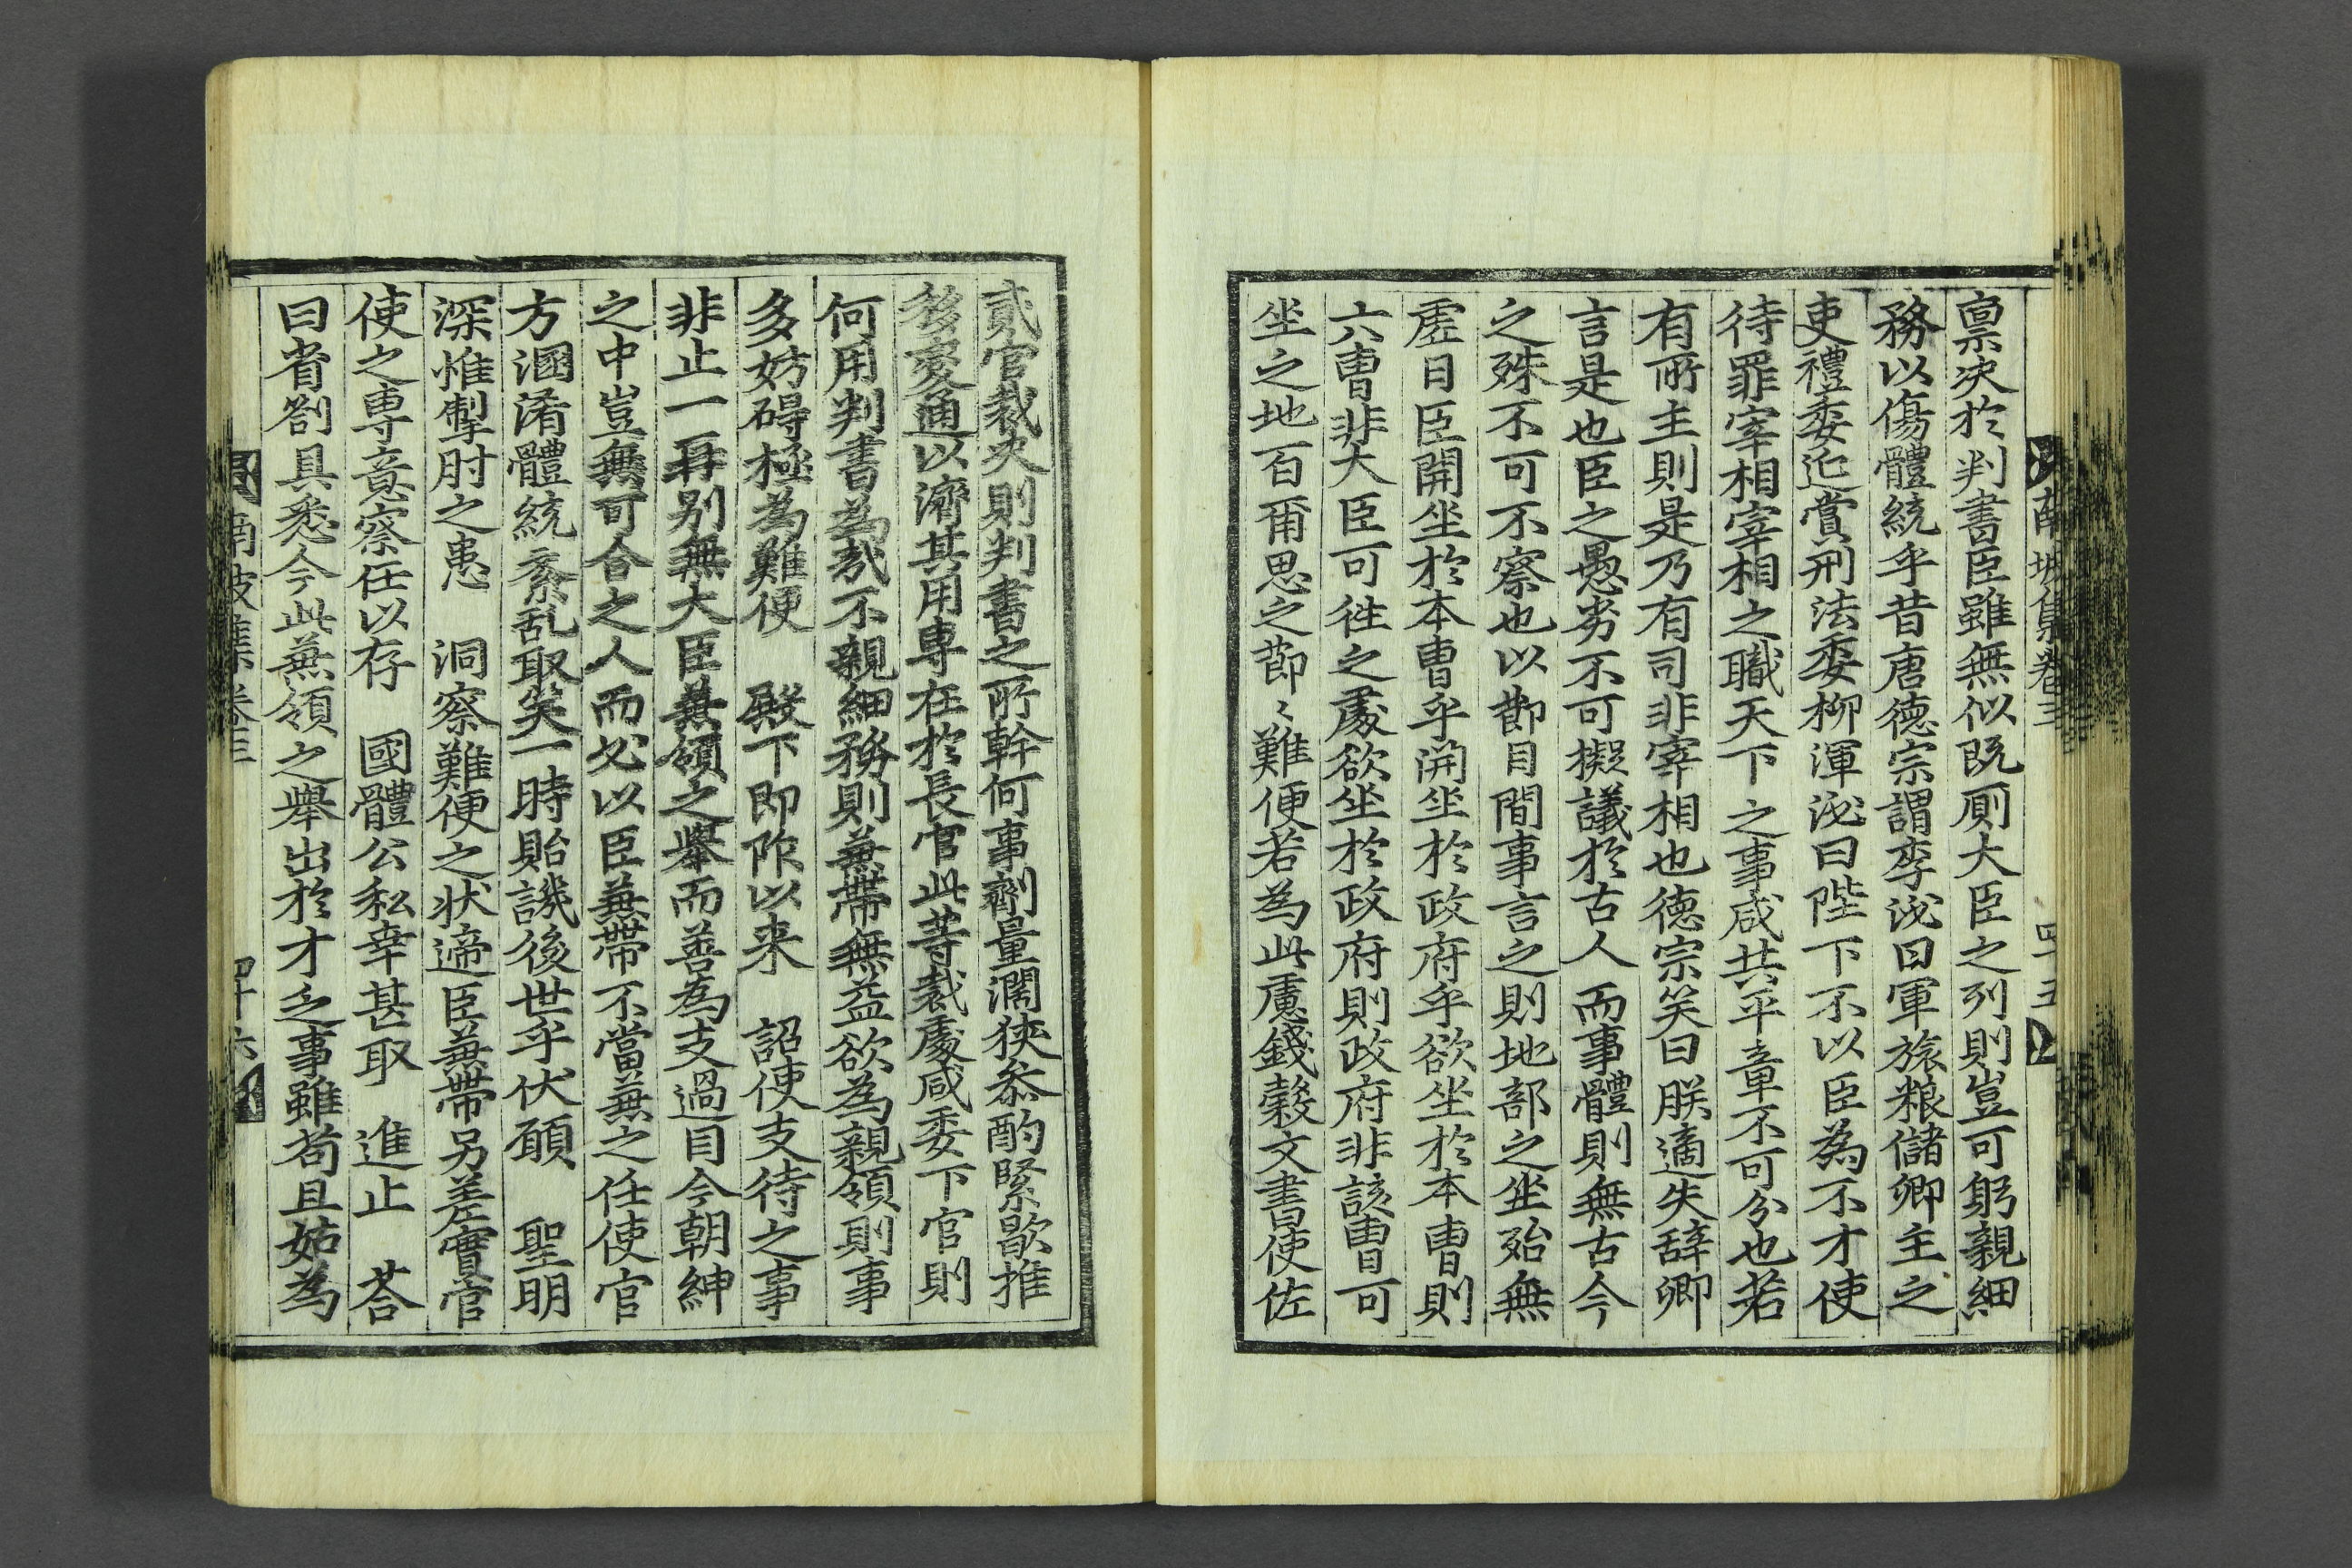 稟决於判書臣雖無似既厠大臣之列則豈可躬親細
務以傷體統乎昔唐德宗謂李泌曰軍旅粮儲卿主之
吏禮委延賞刑法委柳渾泌曰陛下不以臣為不才使
待罪宰相宰相之職天下之事咸共平章不可分也若
有所主則是乃有司非宰相也德宗笑曰朕適失辞卿
言是也臣之愚劣不可擬議於古人而事體則無古今
之殊不可不察也以節目間事言之則地部之坐殆無
虛日臣開坐於本曹乎開坐於政府乎欲坐於本曹則
六曹非大臣可徃之處欲坐於政府則政府非該曹可
坐之地百爾思之節〻難便若為此慮錢糓文書使佐
南坡集卷三 四十五
貳官裁决則判書之所幹何事劑量濶狹叅酌緊歇推
移変通以濟其用専在於長官此等裁處咸委下官則
何用判書為哉不親細務則兼帶無益欲為親領則事
多妨碍極為難便 殿下即阼以来 詔使支待之事
非止一再别無大臣兼領之舉而善為支過目今朝紳
之中豈無可合之人而必以臣兼帶不當兼之任使官
方溷淆體統紊乱取笑一時貽譏後世乎伏願 聖明
深惟掣肘之患 洞察難便之状遞臣兼帶另差實官
使之専意察任以存 國體公私幸甚取 進止 荅
曰省劄具悉今此兼領之舉出於才乏事雖苟且姑為
南坡集卷三 四十六